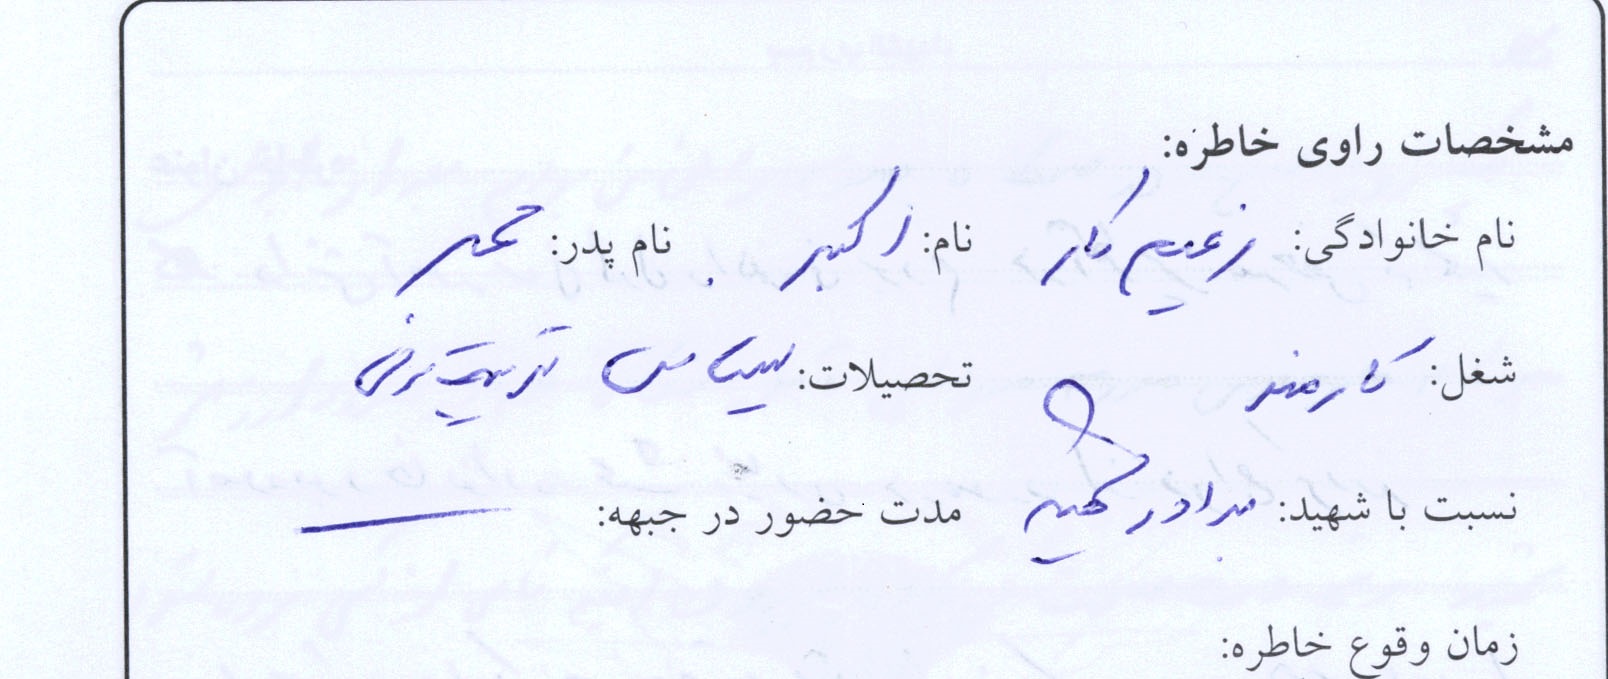 مشخصات راوی خاطره:
نام خانوادگی: زعیم کار نام: اکبر نام پدر:
شغل: کارمند تحصیلات: لیسانس تربیت بدنی
نسبت با شهید: برادر شهید مدت حضور در جبهه: ــــــ
زمان وقوع خاطره: